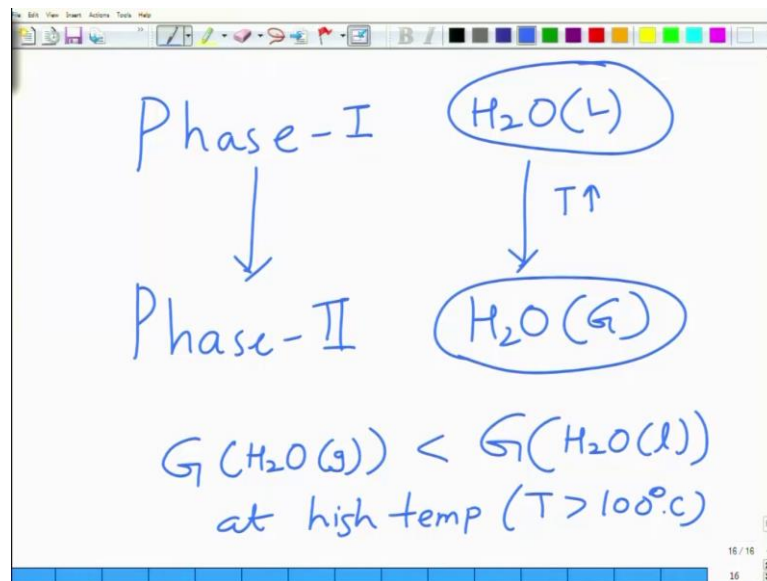 File Edit View Insert Actions Tools Help
B I
Phase-I H₂O(L)
T↑
Phase-II H₂O(G)
G(H₂O(g)) < G(H₂O(l))
at high temp (T > 100°.C)
16 / 16
16